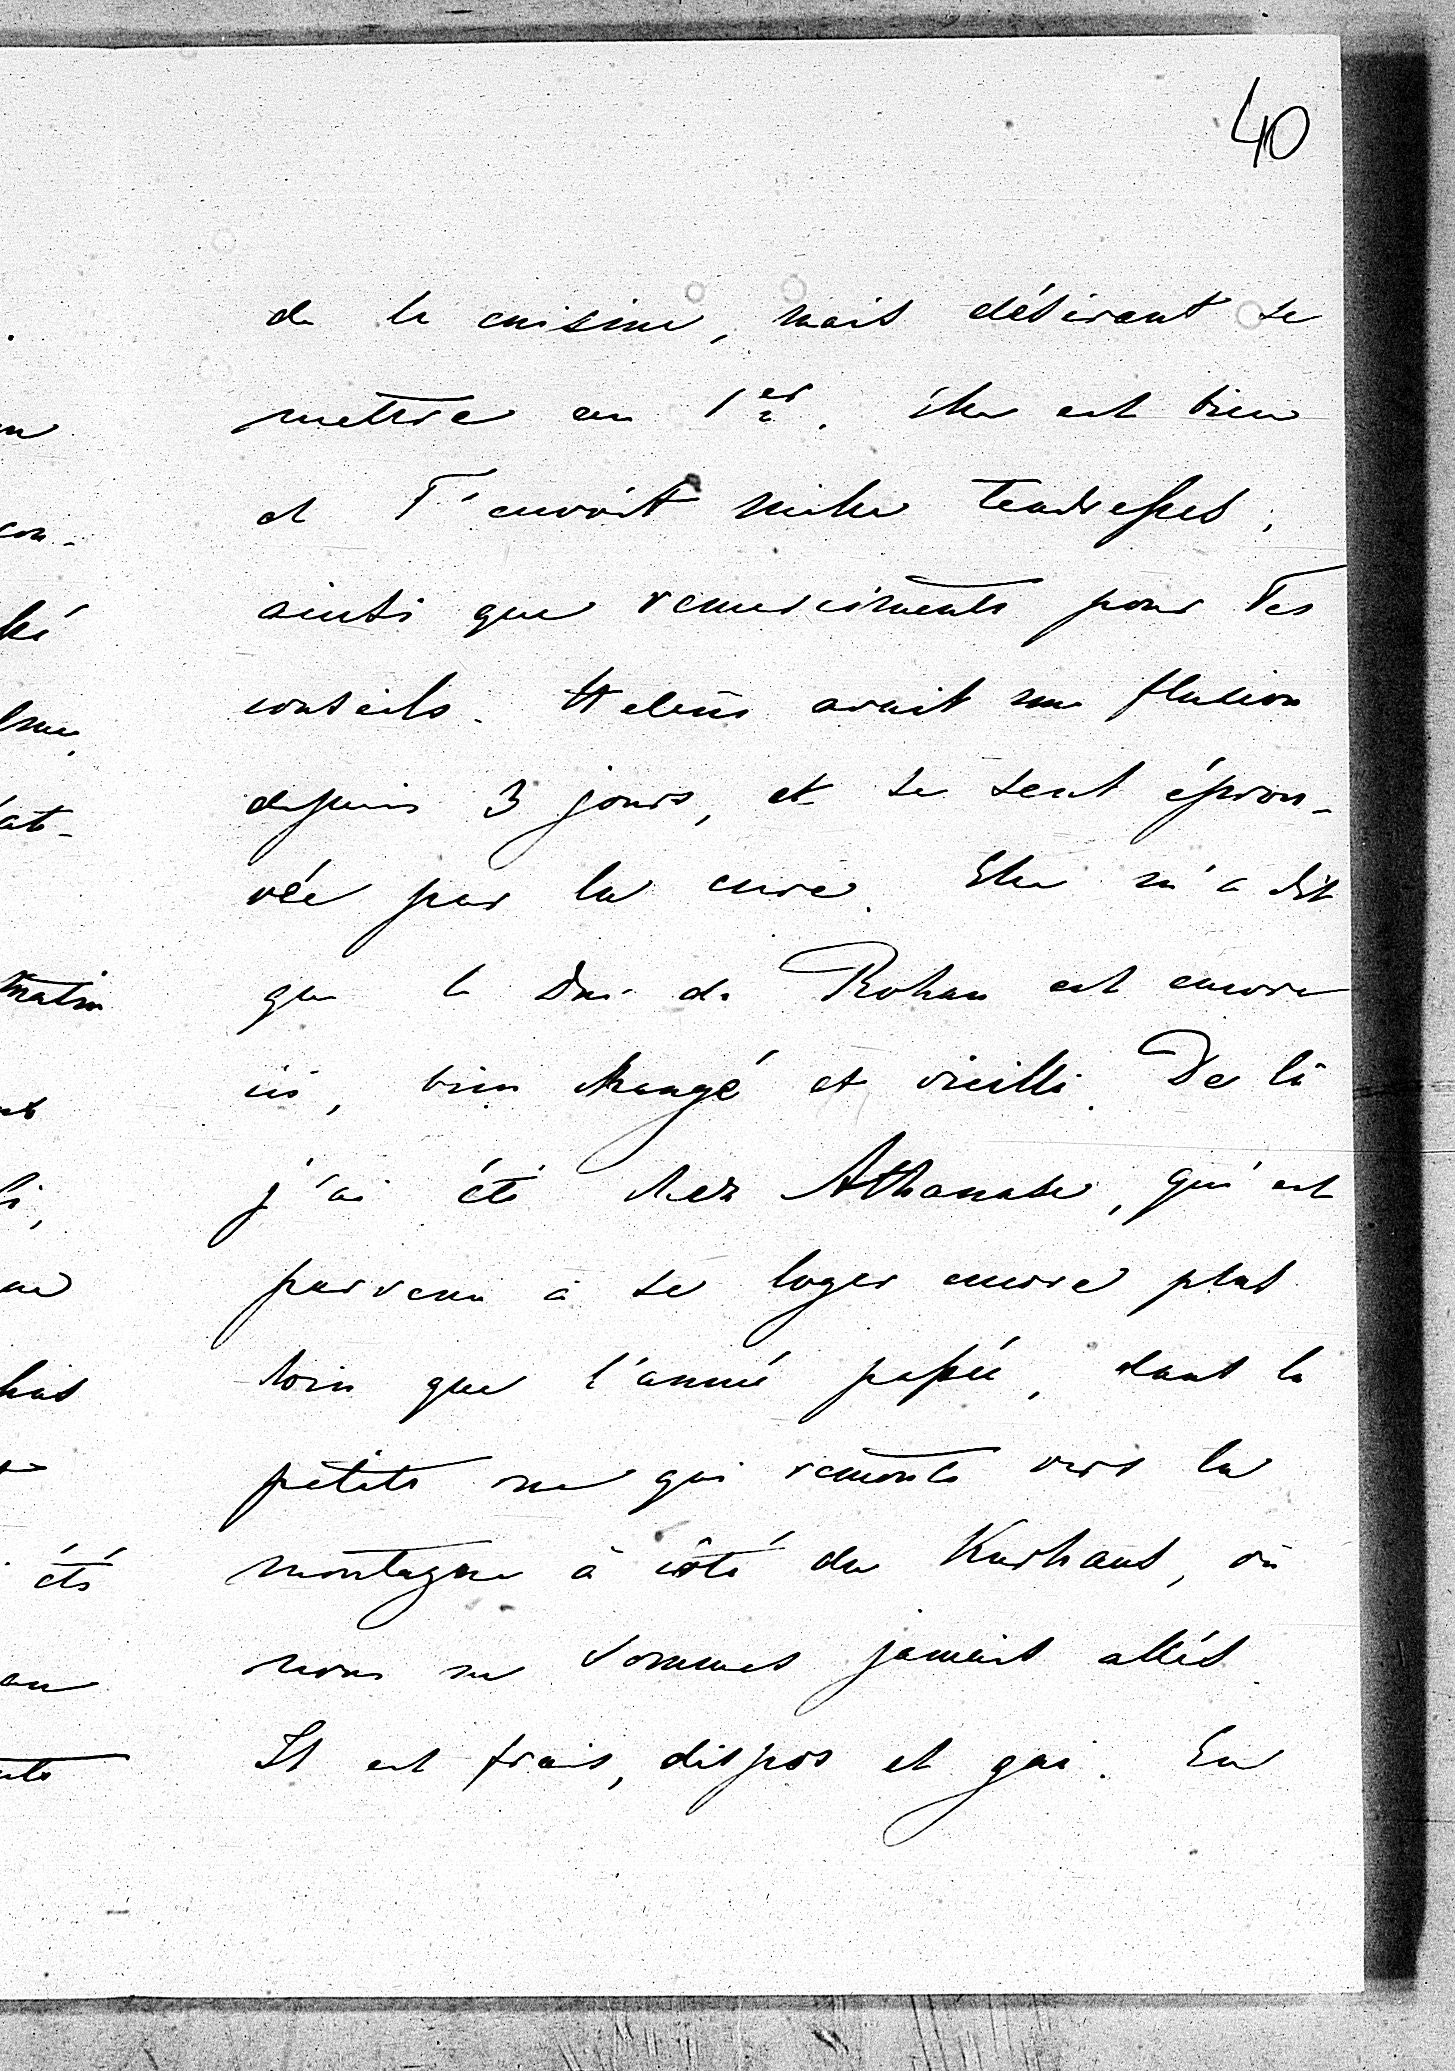 40
de la cuisine, mais désirant se
mettre au 1er. Elle est bien
et T'envoit mille tendresses,
ainsi que remerciments pour Tes
conseils. Helène avait une fluxion
depuis 3 jours, et se sent éprou-
vée par la cure. Elle m'a dit
que le Duc de Rohan est encore
ici, bien changé et vieilli. De là
j'ai été chez Athanase, qui est
parvenu à se loger encore plus
loin que l'année passée, dans la
petite rue qui remonte vers la
montagne à côté du Kurhaus, où
nous ne sommes jamais allés.
Il est frais, dispos et gai. En
matin
été